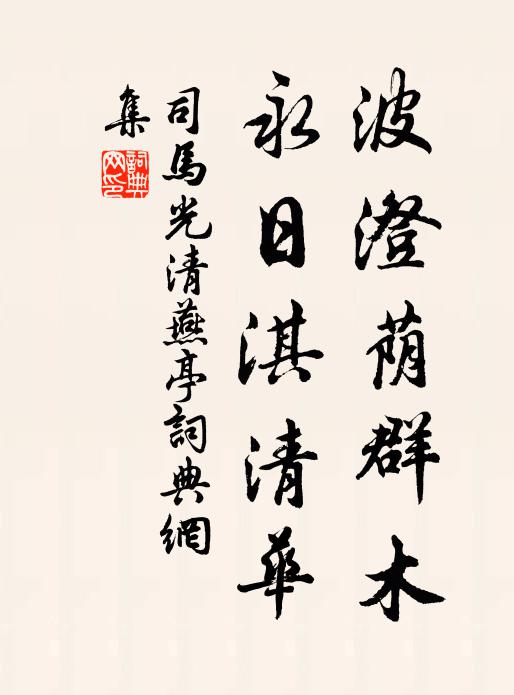 波澄荫群木
永日淇清華
司馬光清燕亭詞典網
集
詞典網印